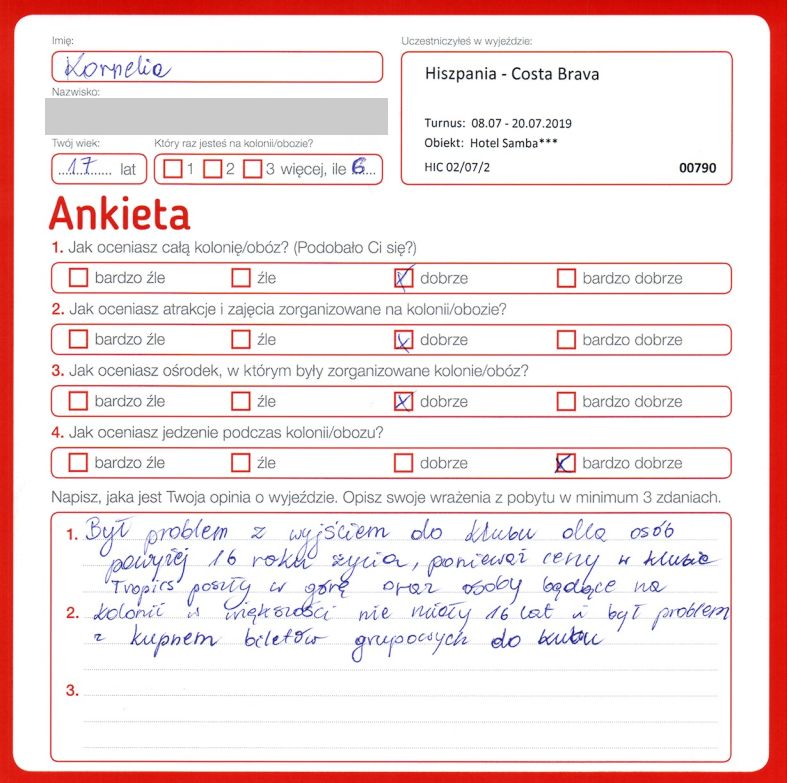 Imię:
Kornelia
Nazwisko:
Twój wiek:
17 lat
Który raz jesteś na kolonii/obozie?
1 2 3 więcej, ile 6
Uczestniczyłeś w wyjeździe:
Hiszpania - Costa Brava
Turnus: 08.07 - 20.07.2019
Obiekt: Hotel Samba***
HIC 02/07/2 00790
Ankieta
1. Jak oceniasz całą kolonię/obóz? (Podobało Ci się?)
bardzo źle źle dobrze bardzo dobrze
2. Jak oceniasz atrakcje i zajęcia zorganizowane na kolonii/obozie?
bardzo źle źle dobrze bardzo dobrze
3. Jak oceniasz ośrodek, w którym były zorganizowane kolonie/obóz?
bardzo źle źle dobrze bardzo dobrze
4. Jak oceniasz jedzenie podczas kolonii/obozu?
bardzo źle źle dobrze bardzo dobrze
Napisz, jaka jest Twoja opinia o wyjeździe. Opisz swoje wrażenia z pobytu w minimum 3 zdaniach.
1. Był problem z wyjściem do klubu dla osób
powyżej 16 roku życia, ponieważ ceny w klubie
Tropics poszły w górę oraz osoby będące na
2. kolonii w większości nie miały 16 lat i był problem
z kupnem biletów grupowych do klubu
3.